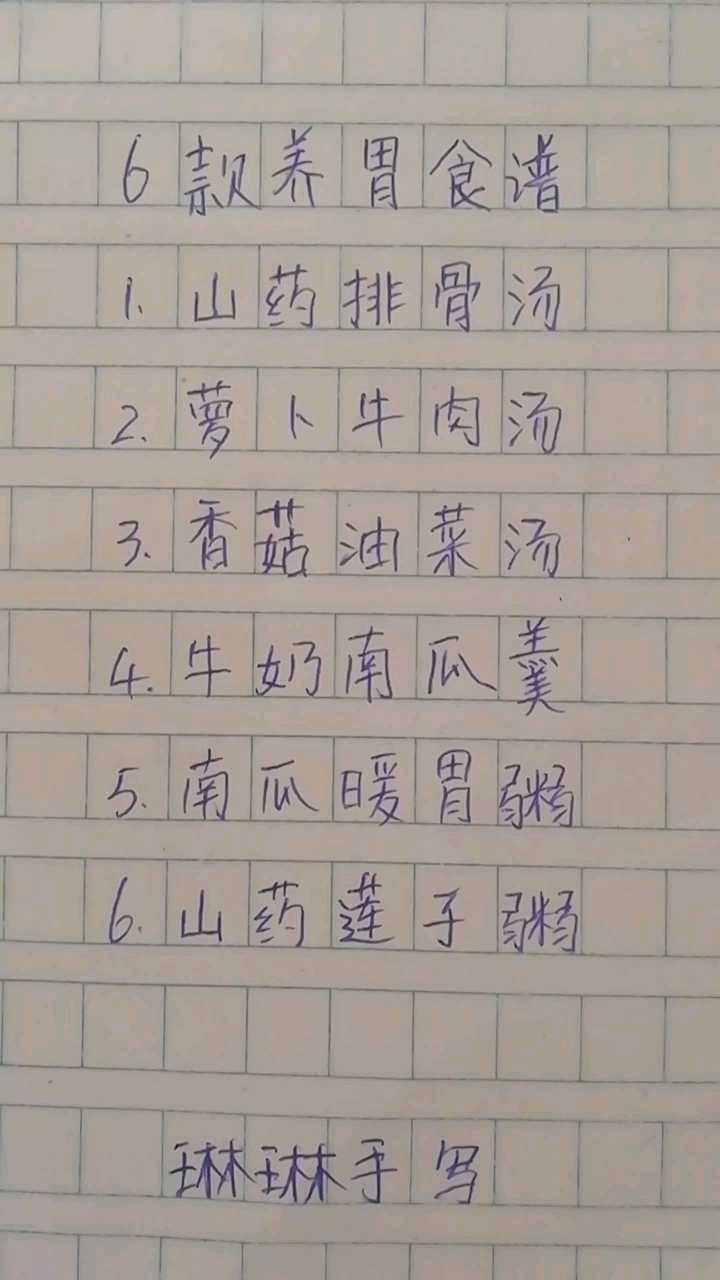 6款养胃食谱
1.山药排骨汤
2.萝卜牛肉汤
3.香菇油菜汤
4.牛奶南瓜羹
5.南瓜暖胃粥
6.山药莲子粥
琳琳手写